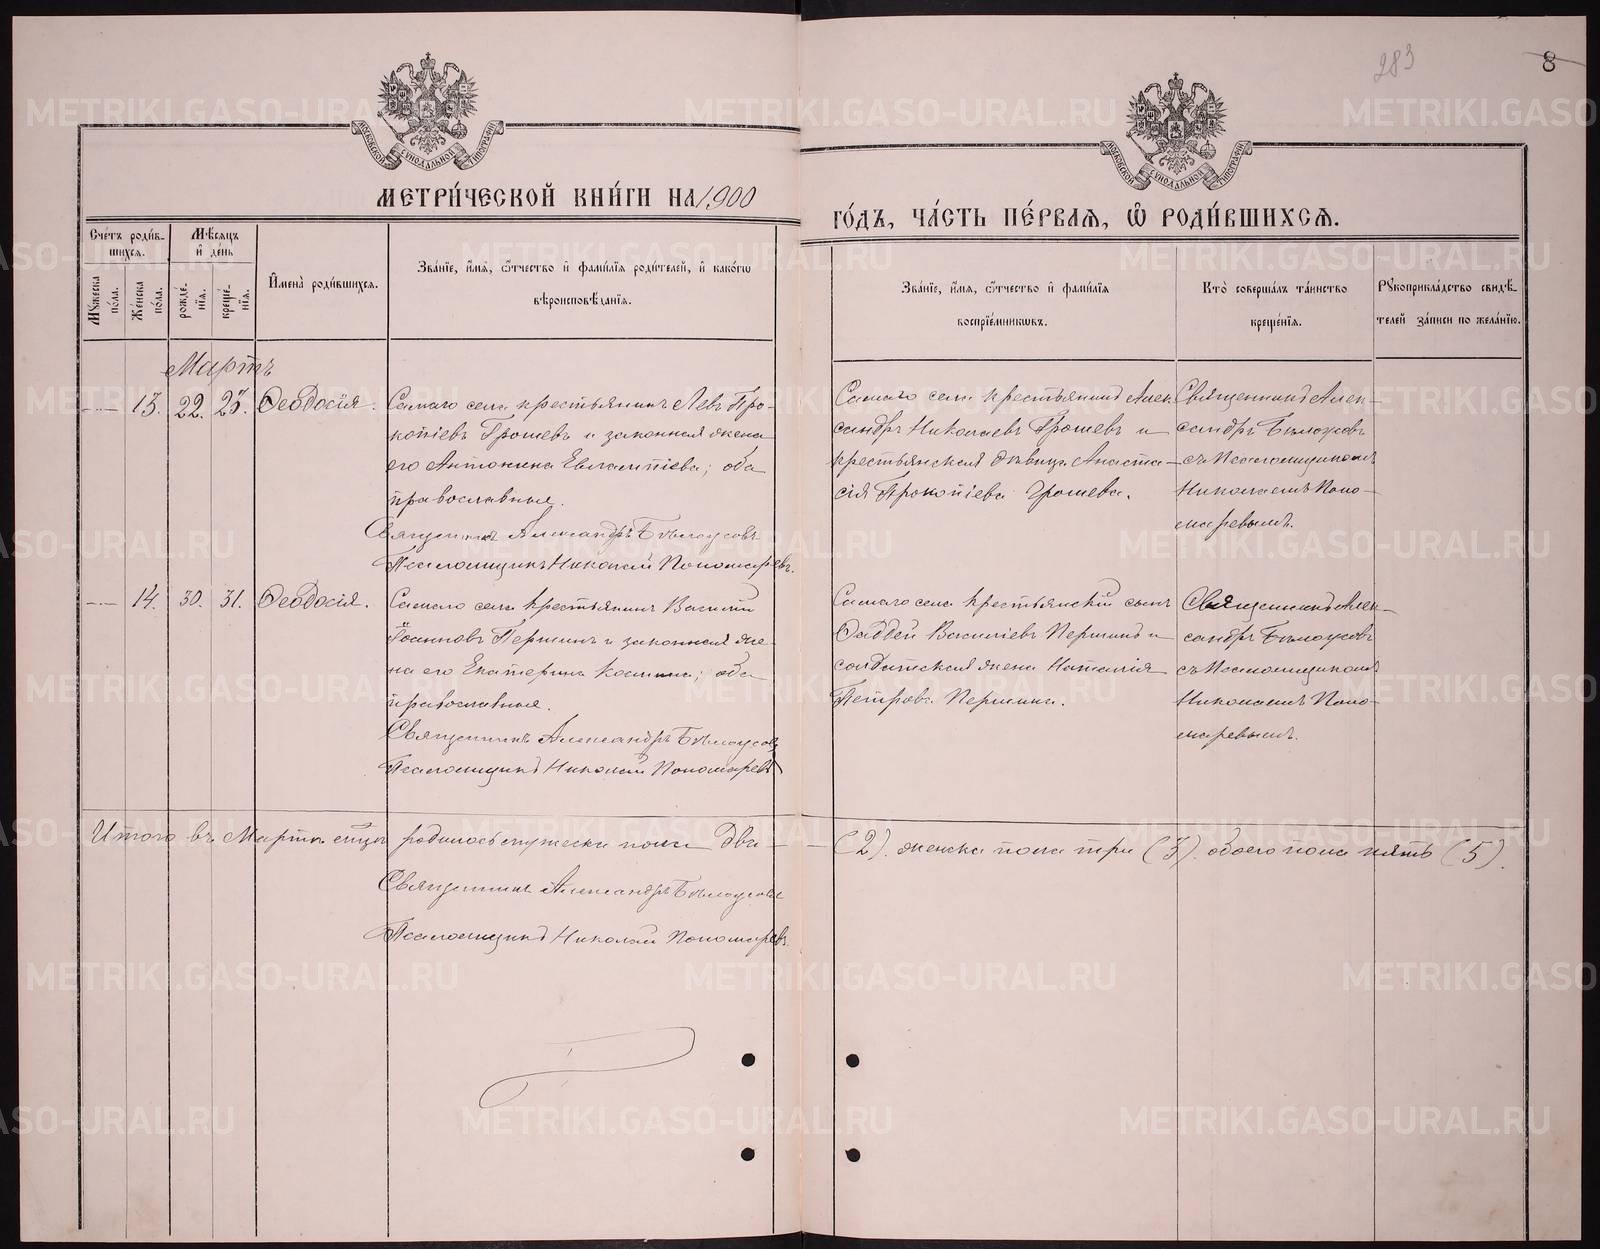 283
8
МОСКОВСКОЙ СѴНОДАЛЬНОЙ ТИПОГРАФІИ
МОСКОВСКОЙ СѴНОДАЛЬНОЙ ТИПОГРАФІИ
МЕТРИ́ЧЕСКОЙ КНИ́ГИ НА 1900
ГО́ДЪ, ЧА́СТЬ ПЕ́РВАЯ, Ѿ РОДИ́ВШИХСЯ.
Сче́тъ роди́в-
шихся.
Мѣ́сяцъ
и҆ де́нь
Мꙋ́жеска
по́ла.
Же́нска
по́ла.
рожде́-
нїя.
креще́-
нїя.
И҆мена̀ роди́вшихся.
Зва́нїе, и҆́мя, ѻ҆́тчество и҆ фами́лїя роди́телей, и҆ како́гѡ
вѣроисповѣ́данїя.
Зва́нїе, и҆́мя, ѻ҆́тчество и҆ фами́лїя
воспрїе́мникѡвъ.
Кто̀ соверша́лъ та́инство
креще́нїя.
Рꙋкоприкла́дство свидѣ́-
телей за́писи по жела́нїю.
Мартъ
— 13. 22. 23. Ѳеодосія.
Самаго села крестьянинъ Левъ Про-
копіевъ Грошевъ и законная жена
его Антонина Евлампіева; оба
православные.
Священникъ Александръ Бѣлоусовъ
Псаломщикъ Николай Пономаревъ.
Самаго села крестьянинъ Алек
сандръ Николаевъ Грошевъ и
крестьянская дѣвица Анаста-
сія Прокопіева Грошева.
Священникъ Алек-
сандръ Бѣлоусовъ
съ Псаломщикомъ
Николаемъ Поно-
маревымъ.
— 14. 30. 31. Ѳеодосія.
Самаго села крестьянинъ Василій
Іоанновъ Першинъ и законная же-
на его Екатерина Косьмина; оба
православные.
Священникъ Александръ Бѣлоусовъ
Псаломщикъ Николай Пономаревъ
Самаго села крестьянскій сынъ
Ѳаддей Василіевъ Першинъ и
солдатская жена Наталія
Петрова Першина.
Священникъ Алек-
сандръ Бѣлоусовъ
съ Псаломщикомъ
Николаемъ Поно-
маревымъ.
Итого въ Мартѣ м̃цѣ родилось мужеска пола два — (2). женска пола три (3). обоего пола пять (5).
Священникъ Александръ Бѣлоусовъ
Псаломщикъ Николай Пономаревъ.